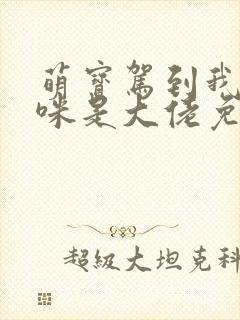 萌寶駕到我
咪是大佬免
超級大坦克科